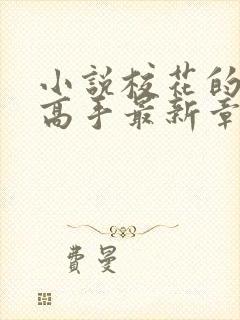 小説校花的
高手最新章
費曼